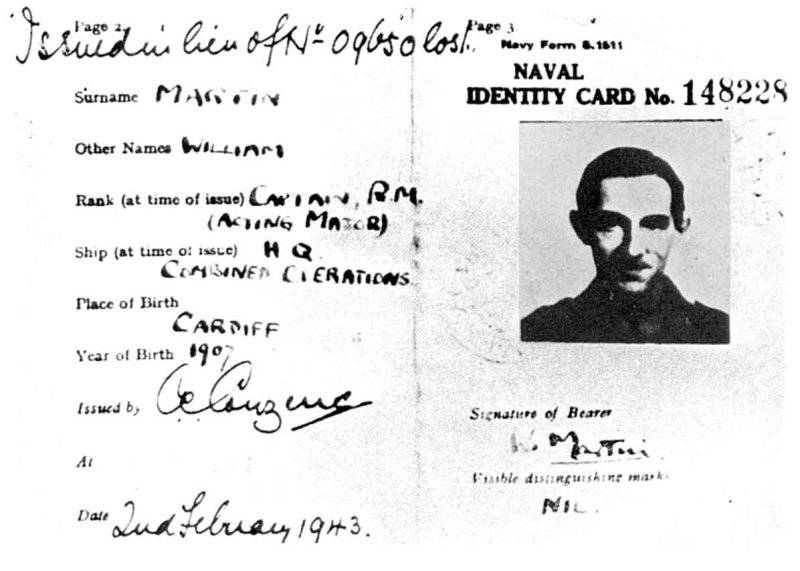 Page 2
Issued in lieu of No 09650 lost.
Surname MARTIN
Other Names WILLIAM
Rank (at time of issue) CAPTAIN, R.M.
(ACTING MAJOR)
Ship (at time of issue) H Q
COMBINED OPERATIONS
Place of Birth
CARDIFF
Year of Birth 1907
Issued by
At
Date 2nd February 1943.
Page 3
Navy Form S.1511
NAVAL
IDENTITY CARD No. 148228
Signature of Bearer
W. Martin.
Visible distinguishing marks
NIL.